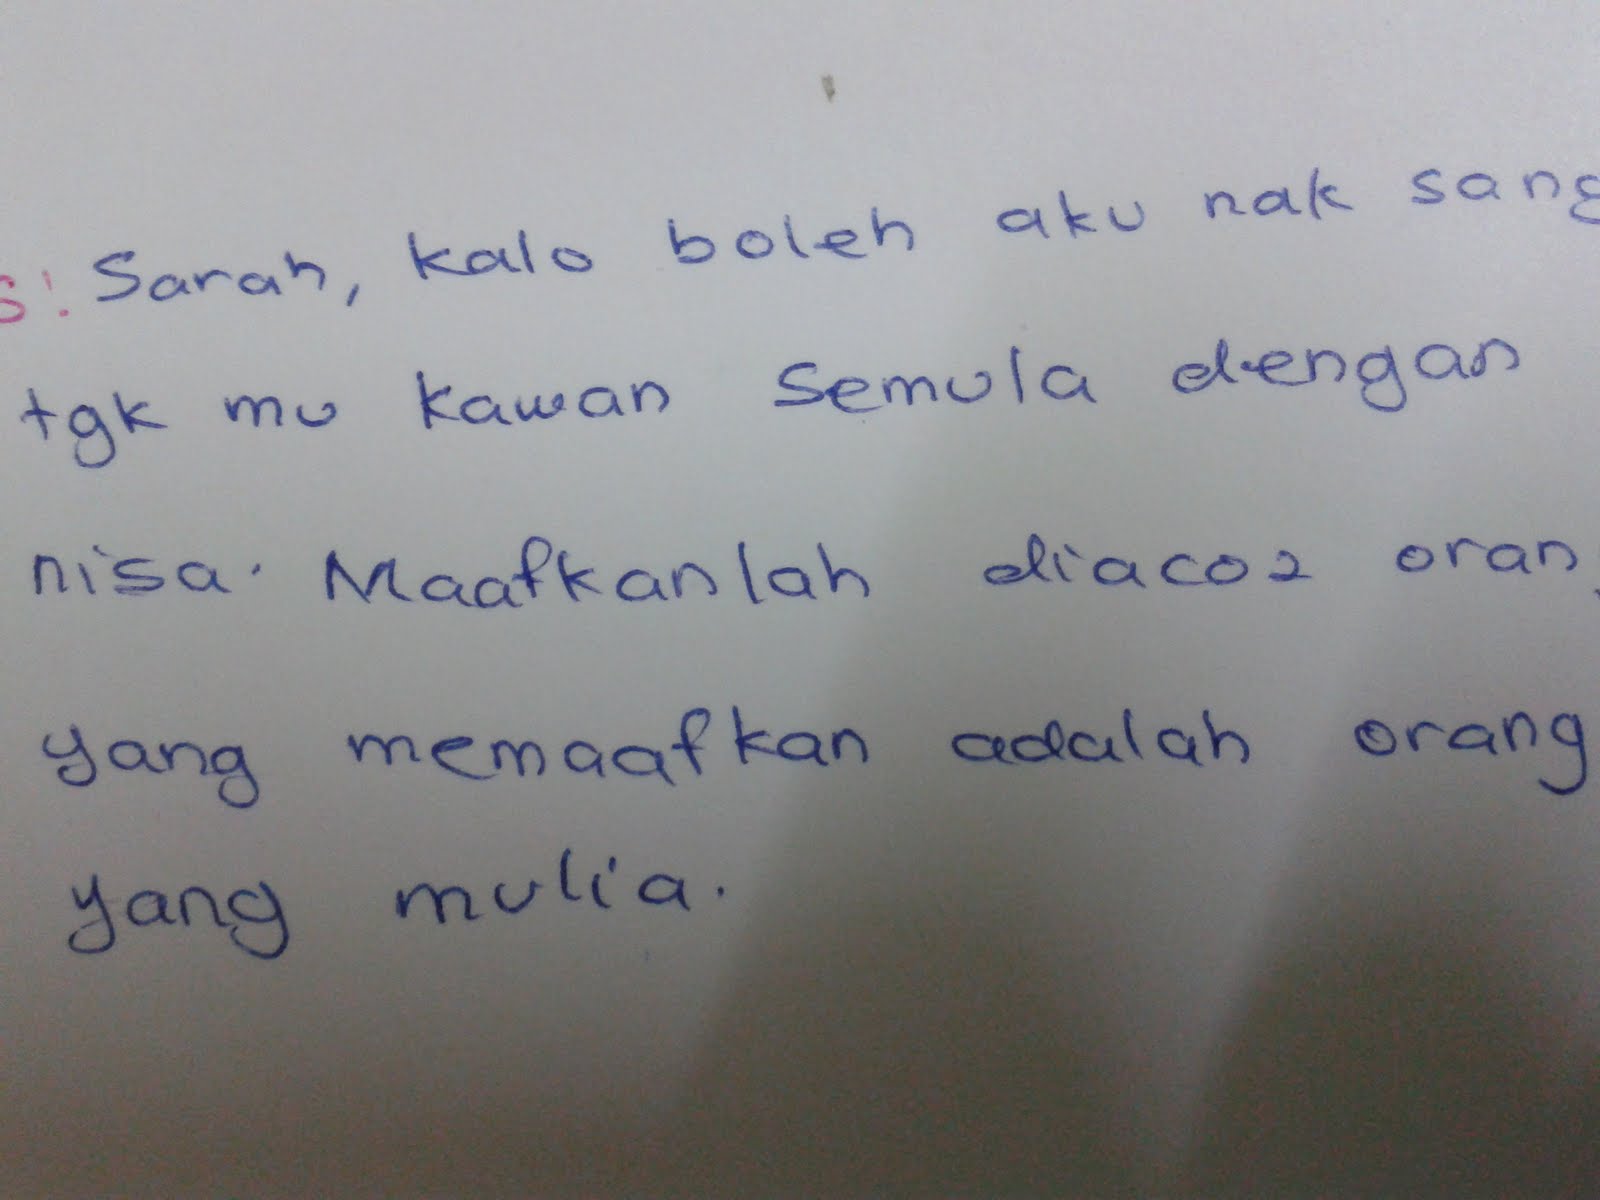 s! Sarah, kalo boleh aku nak sang
tgk mu kawan semula dengan
nisa. Maafkanlah diacoz orang
yang memaafkan adalah orang
yang mulia.